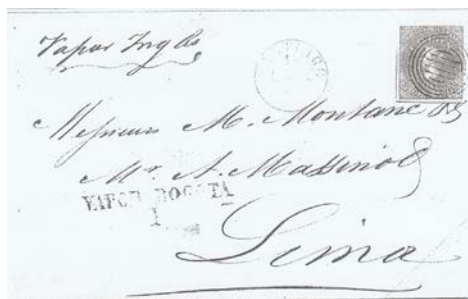 Vapor Ingles
SANTIAGO
Messieurs M. Montané &
Mr. A. Massinot
VAPOR BOGOTA
1
Lima